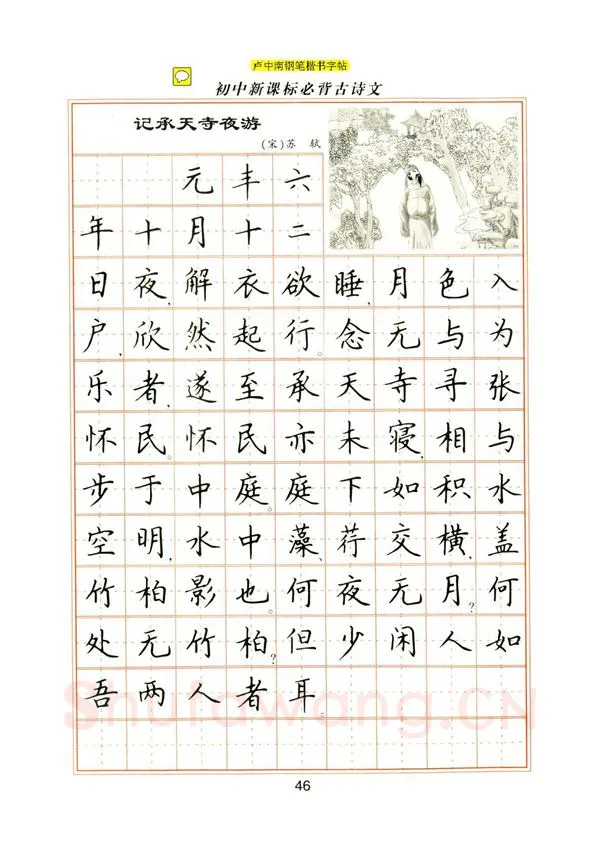 卢中南钢笔楷书字帖
初中新课标必背古诗文
记承天寺夜游
(宋)苏 轼
元丰六
年十月十二
日夜,解衣欲睡,月色入
户,欣然起行。念无与为
乐者,遂至承天寺寻张
怀民。怀民亦未寝,相与
步于中庭。庭下如积水
空明,水中藻、荇交横,盖
竹柏影也。何夜无月?何
处无竹柏?但少闲人如
吾两人者耳。
Shufawang.CN
46